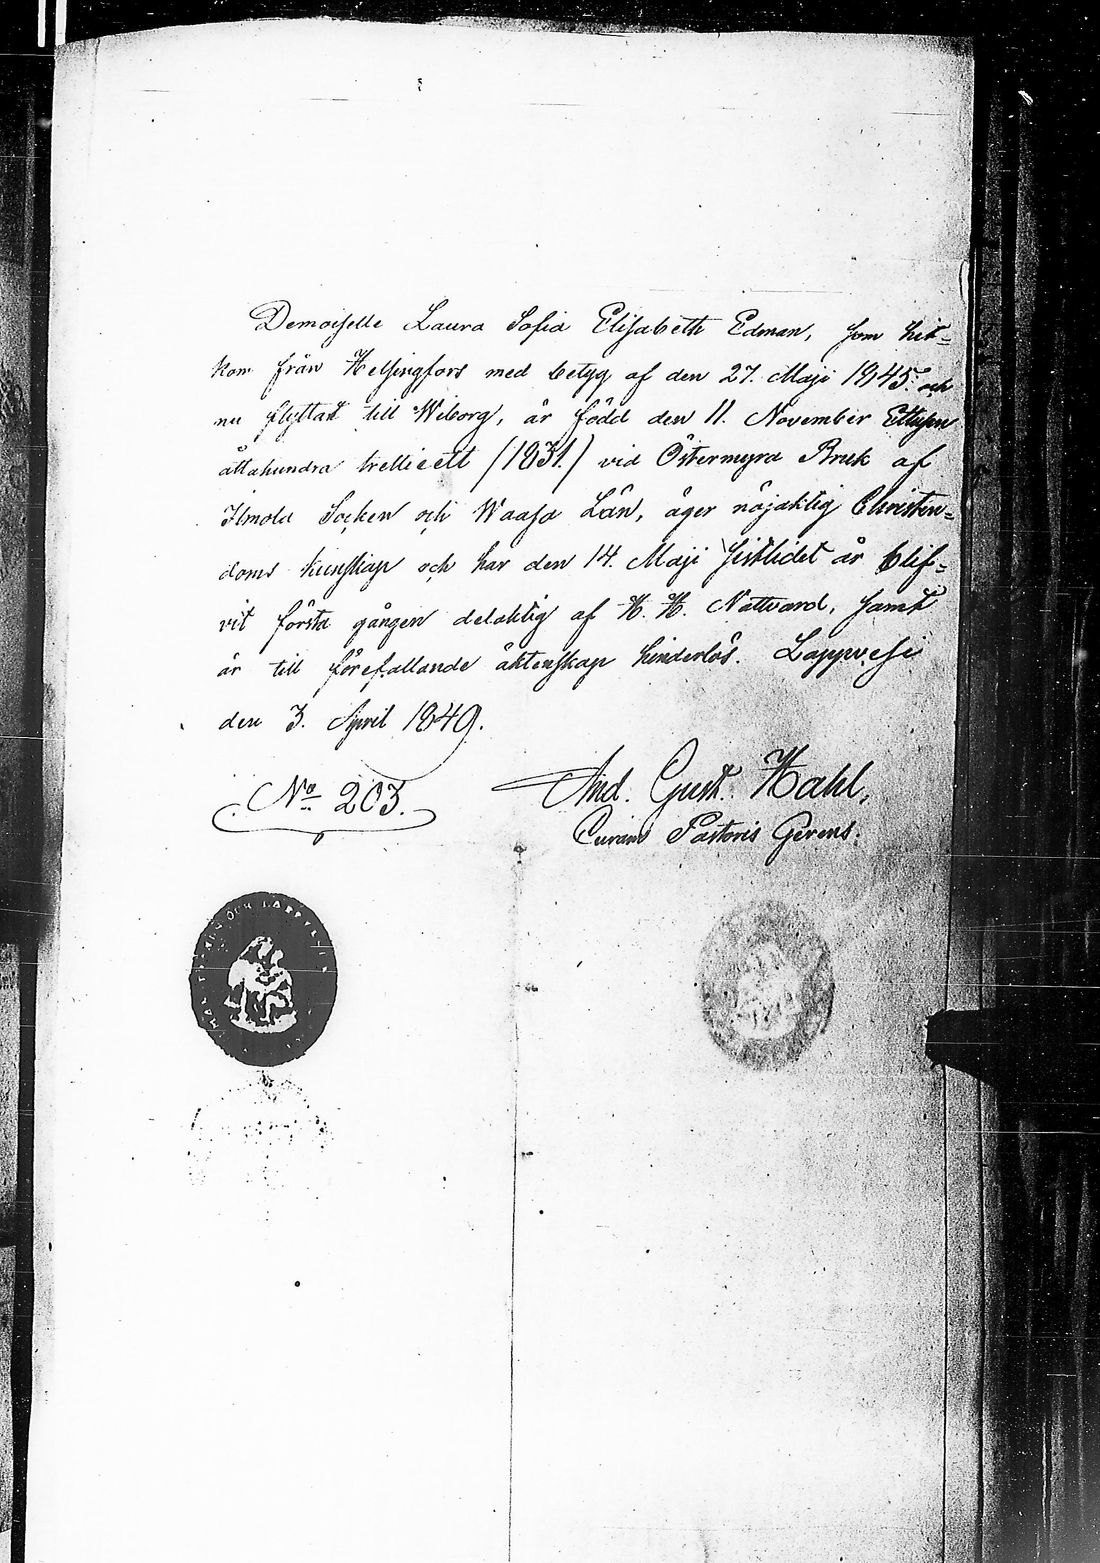 Demoiselle Laura Sofia Elisabeth Edman, som hit-
kom från Helsingfors med betyg af den 27. Maji 1845. och
nu flyttat till Wiborg, är född den 11. November Ettusen
åttahundra trettioett /1831./ vid Östermyra Bruk af
Ilmola Socken och Waasa Län, äger nöjaktig Christen-
doms kunskap och har den 14. Maji sistlidet år blif-
vit första gången delaktig af H. H. Nattvard, samt
är till förefallande äktenskap hinderlös. Lappvesi
den 3. April 1849.
No 203.
And. Gust. Hahl,
Curam Pastoris Gerens.